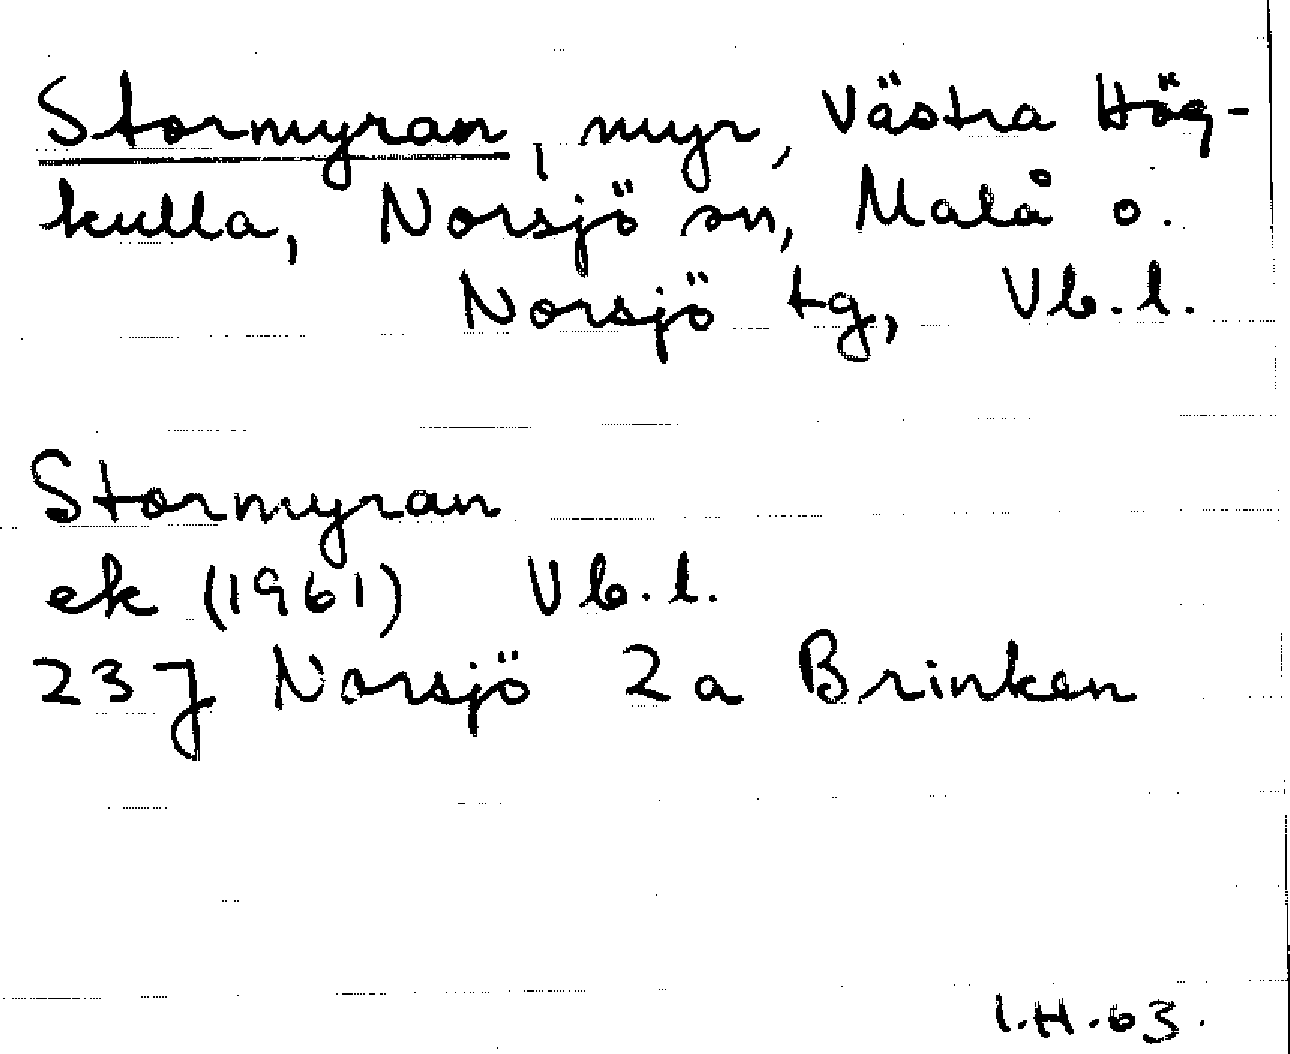 Stormyran, myr, Västra Hög-
kulla, Norsjö sn, Malå o.
Norsjö tg, Vb.l.
Stormyran
ek (1961) Vb.l.
23 J Norsjö 2a Brinken
I.H.63.